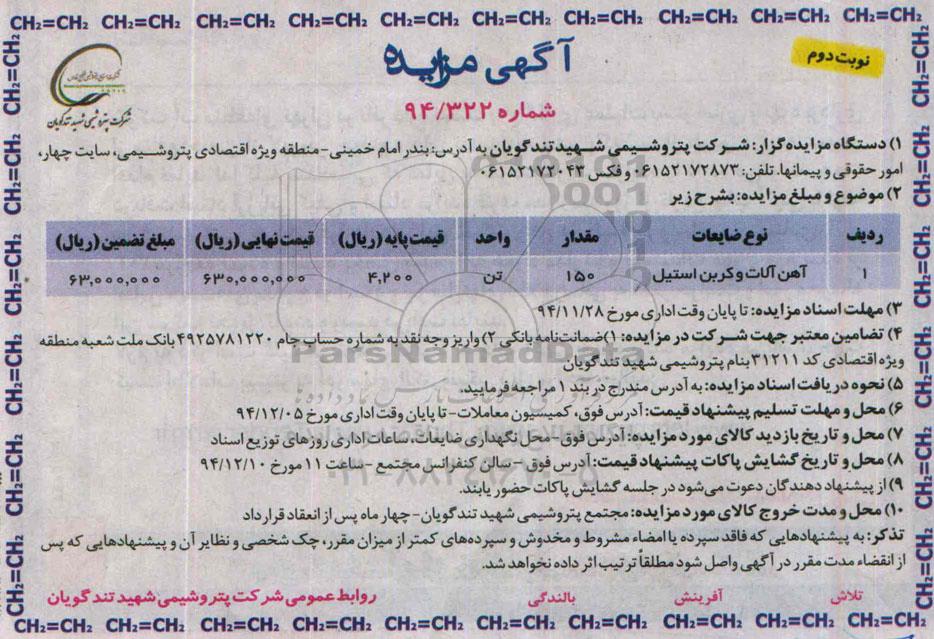 CH₂=CH₂ CH₂=CH₂ CH₂=CH₂ CH₂=CH₂ CH₂=CH₂ CH₂=CH₂ CH₂=CH₂ CH₂=CH₂ CH₂=CH₂ CH₂=CH₂
نوبت دوم
آگهی مزایده
شرکت پتروشیمی شهید تندگویان
شماره ۹۴/۳۲۲
۱) دستگاه مزایده‌گزار: شرکت پتروشیمی شهید تندگویان به آدرس: بندر امام خمینی-منطقه ویژه اقتصادی پتروشیمی، سایت چهار،
امور حقوقی و پیمانها. تلفن: ۰۶۱۵۲۱۷۲۸۷۳ و فکس ۰۶۱۵۲۱۷۲۰۴۳
۲) موضوع و مبلغ مزایده: بشرح زیر
ردیف نوع ضایعات مقدار واحد قیمت پایه (ریال) قیمت نهایی (ریال) مبلغ تضمین (ریال)
۱ آهن آلات و کربن استیل ۱۵۰ تن ۴,۲۰۰ ۶۳۰,۰۰۰,۰۰۰ ۶۳,۰۰۰,۰۰۰
۳) مهلت اسناد مزایده: تا پایان وقت اداری مورخ ۹۴/۱۱/۲۸
۴) تضامین معتبر جهت شرکت در مزایده: ۱) ضمانت‌نامه بانکی ۲) واریز وجه نقد به شماره حساب جام ۴۹۲۵۷۸۱۲۲۰ بانک ملت شعبه منطقه
ویژه اقتصادی کد ۳۱۲۱۱ بنام پتروشیمی شهید تندگویان
ParsNamadData
۵) نحوه دریافت اسناد مزایده: به آدرس مندرج در بند ۱ مراجعه فرمایید.
۶) محل و مهلت تسلیم پیشنهاد قیمت: آدرس فوق، کمیسیون معاملات- تا پایان وقت اداری مورخ ۹۴/۱۲/۰۵
۷) محل و تاریخ بازدید کالای مورد مزایده: آدرس فوق-محل نگهداری ضایعات، ساعات اداری روزهای توزیع اسناد
۸) محل و تاریخ گشایش پاکات پیشنهاد قیمت: آدرس فوق -سالن کنفرانس مجتمع -ساعت ۱۱ مورخ ۹۴/۱۲/۱۰
۹) از پیشنهاد دهندگان دعوت می‌شود در جلسه گشایش پاکات حضور یابند.
۱۰) محل و مدت خروج کالای مورد مزایده: مجتمع پتروشیمی شهید تندگویان-چهار ماه پس از انعقاد قرارداد
تذکر: به پیشنهادهایی که فاقد سپرده یا امضاء مشروط و مخدوش و سپرده‌های کمتر از میزان مقرر، چک شخصی و نظایر آن و پیشنهادهایی که پس
از انقضاء مدت مقرر در آگهی واصل شود مطلقاً ترتیب اثر داده نخواهد شد.
تلاش آفرینش بالندگی روابط عمومی شرکت پتروشیمی شهید تندگویان
CH₂=CH₂ CH₂=CH₂ CH₂=CH₂ CH₂=CH₂ CH₂=CH₂ CH₂=CH₂ CH₂=CH₂ CH₂=CH₂ CH₂=CH₂ CH₂=CH₂